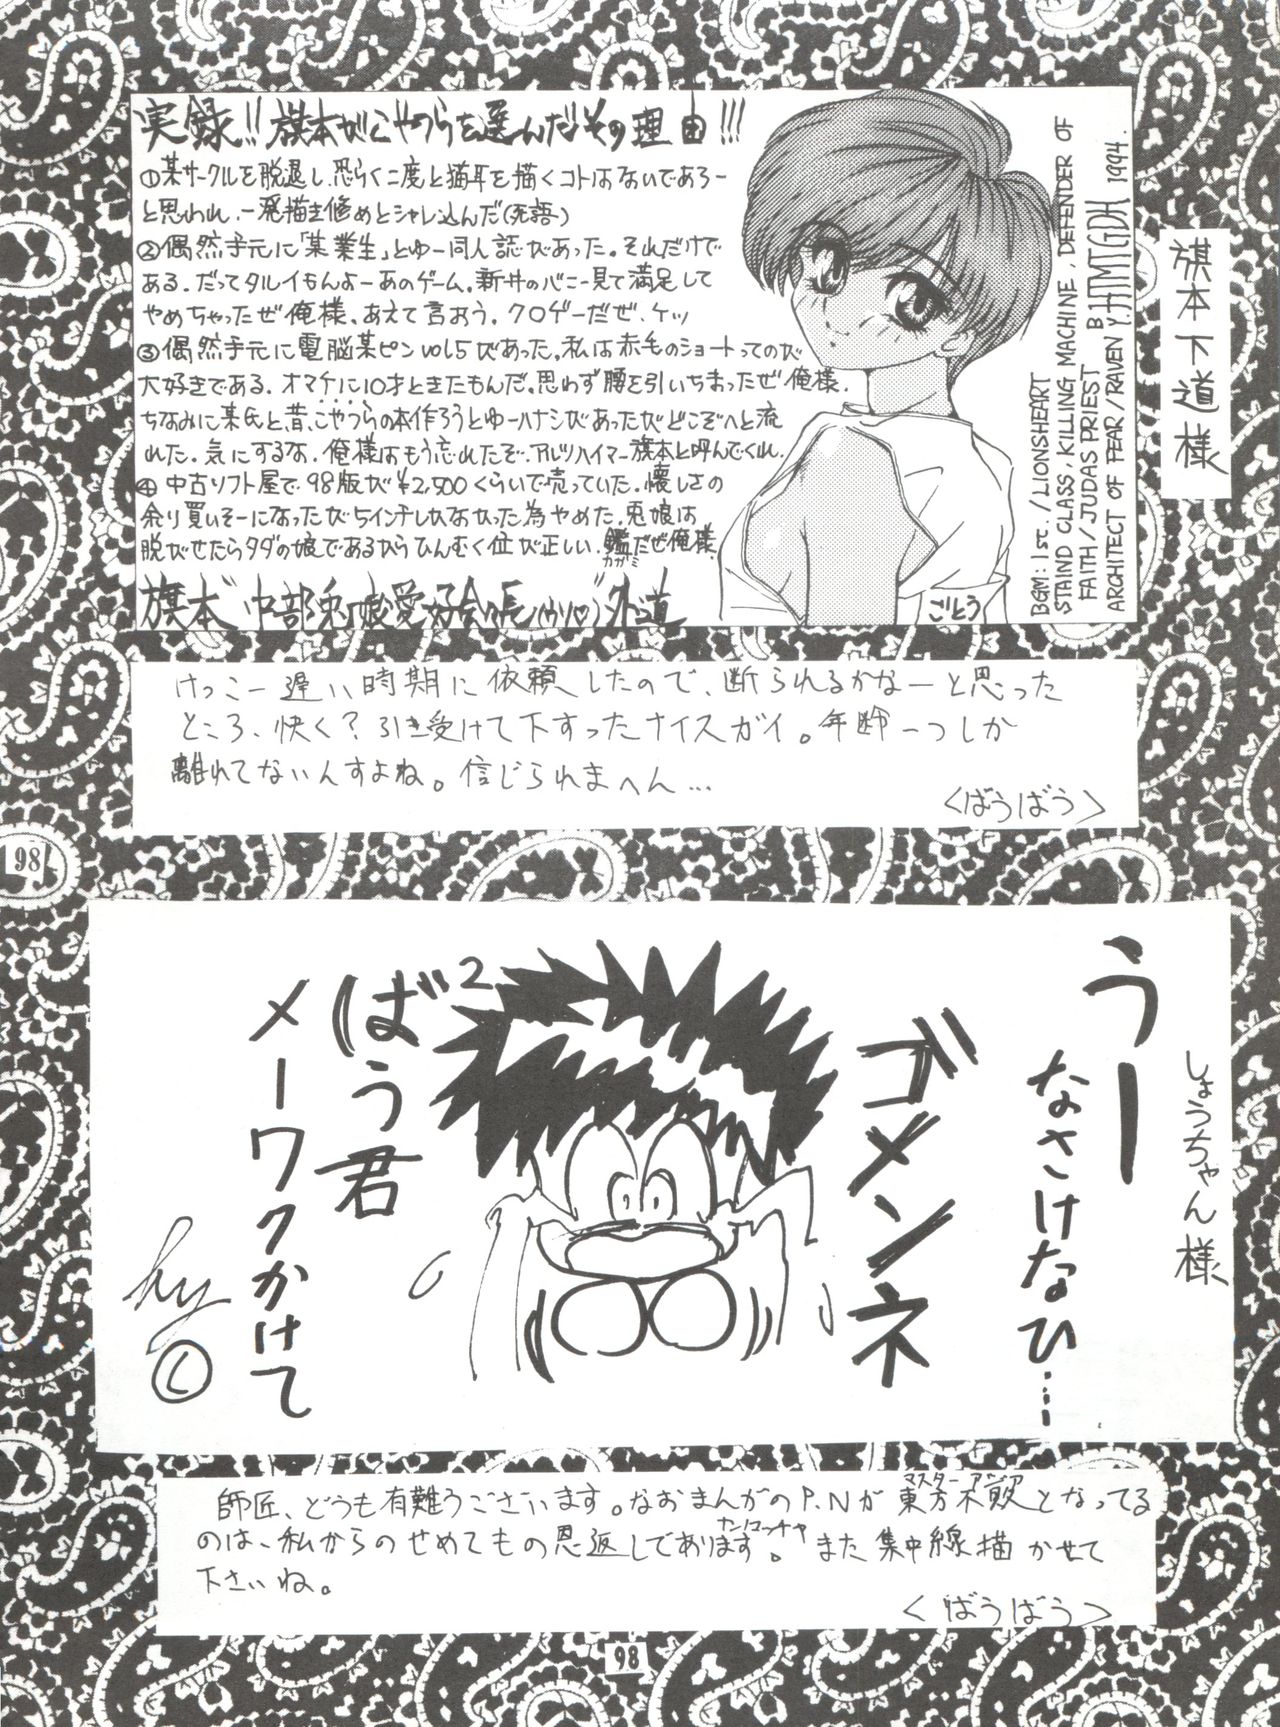 実録!! 旗本がこやつらを選んだその理由!!!
①某サークルを脱退し、恐らく二度と猫耳を描くコトはないであろー
と思われ、一発描き修めとシャレ込んだ(死語)
②偶然手元に「某業生」とゆー同人誌があった。それだけで
ある。だってタルイもんよーあのゲーム。新井のバニー見て満足して
やめちゃったぜ俺様。あえて言おう。クロゲーだぜ、ケッ
③偶然手元に電脳某ピンvol5があった。私は赤毛のショートってのが
大好きである。オマケに10才ときたもんだ。思わず腰を引いちまったぜ俺様。
ちなみに某氏と昔、こやつらの本作ろうとゆーハナシがあったがどこぞへと流
れた。気にするな。俺様はもう忘れたぞ。アルツハイマー旗本と呼んでくれ。
④中古ソフト屋で98版が¥2,500くらいで売っていた。懐しさの
余り買いそーになったが5インチしかなかった為やめた。兎娘は
脱がせたらタダの娘であるからひんむく位が正しい。鑑だぜ俺様。
カガミ
旗本 中部兎娘愛好会々長 外道
ごとう
BGM: 1st. / LIONSHEART
STAIND CLASS, KILLING MACHINE, DEFENDER OF
FAITH / JUDAS PRIEST
ARCHITECT OF FEAR / RAVEN
1994.
旗本下道様
けっこー遅い時期に依頼したので、断られるかなーと思った
ところ、快く?引き受けて下すったナイスガイ。年齢一つしか
離れてないんすよね。信じられまへん…
<ばうばう>
98
しょうちゃん様
うー
なさけなひ…
ゴメンネ
ばう²君
メーワクかけて
hy
師匠、どうも有難うございます。なおまんがのP.Nが東方不敗となってる
マスターアジア
のは、私からのせめてもの恩返しであります。また集中線描かせて
ナンコッチャ
下さいね。
<ばうばう>
98